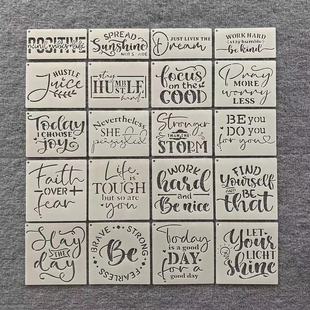 POSITIVE
mind vibes life
SPREAD
Sunshine
JUST LIVIN THE
Dream
WORK HARD
stay humble
be kind
HUSTLE
Juice
stay
HUMBLE
hard
focus
on the
GOOD
PRAY
MORE
WORRY
LESS
Today
I CHOOSE
JOY
Nevertheless
SHE
persisted
Stronger
THAN THE
STORM
BE YOU
DO YOU
for you
Faith
OVER
fear
Life
IS
TOUGH
but so are
you
WORK
hard
and
Be nice
FIND
Yourself
AND BE
that
Slay
THE
day
BRAVE • STRONG
Be
FEARLESS
Today
is a good
DAY
for a
good day
LET
Your
LIGHT
shine